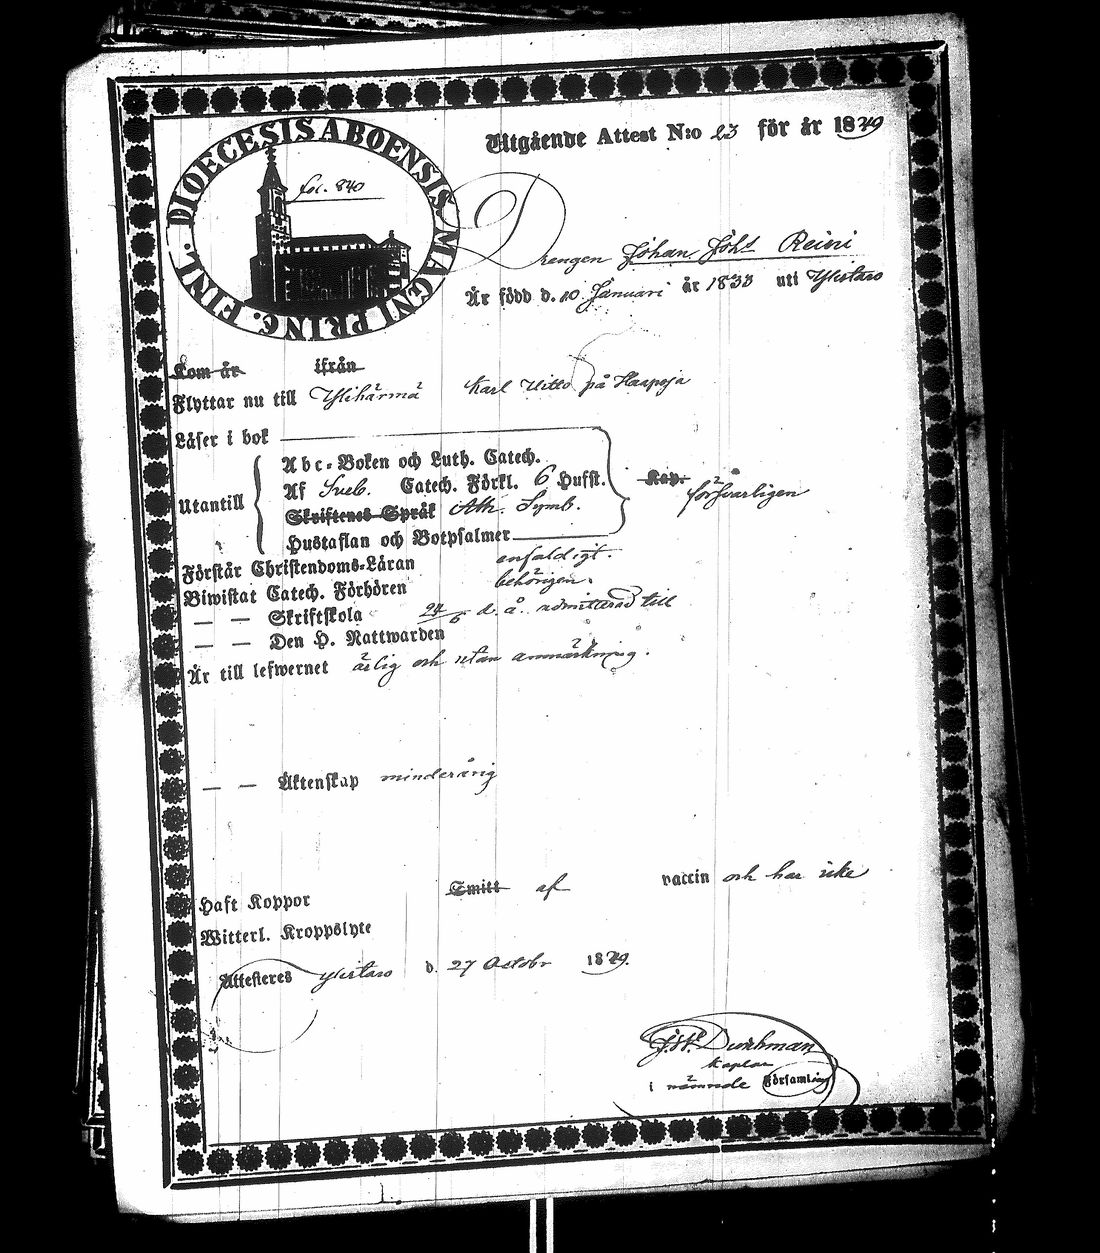 DIOECESIS ABOENSIS MAGNI PRINC. FINL.
fol. 840
Utgående Attest N:o 23 för år 1849
Drengen Johan Joh:s Reini
Är född d. 10 Januari år 1833 uti Ylistaro
Kom år ifrån
Flyttar nu till Ylihärmä Karl Uitto på Haapoja
Läser i bok
Utantill
Abc-Boken och Luth. Catech.
Af Sveb. Catech. Förkl. 6 Hufst.
Skriftenes Språk Ath. Symb.
Hustaflan och Botpsalmer
Kap. försvarligen
Förstår Christendoms-Läran enfaldigt.
Biwistat Catech. Förhören behörigen.
— — Skriftskola 24/6 d. å. admitterad till
— — Den H. Nattwarden
Är till lefwernet ärlig och utan anmärkning.
— — Äktenskap minderårig
Haft Koppor Smitt af vaccin och har icke
Witterl. Kroppslyte
Attesteres Ylistaro d. 27 Octobr 1849.
Kaplan
i nämnde Församling